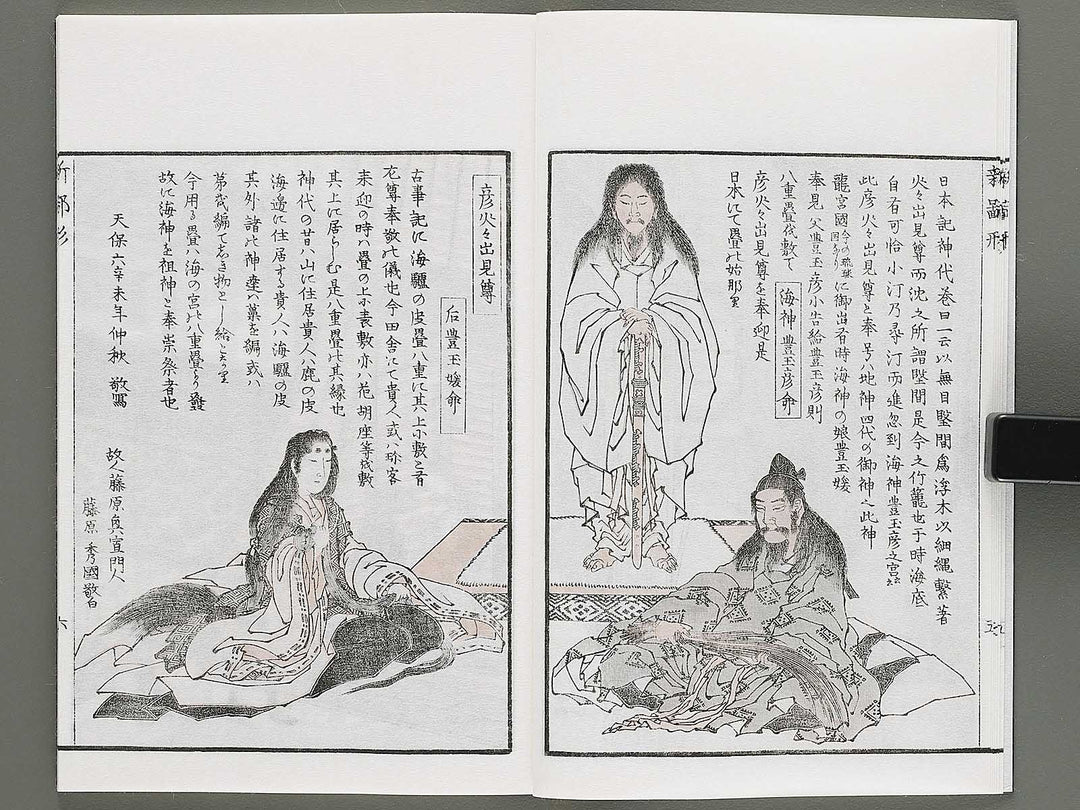 日本記神代巻曰一云以無目堅間為浮木以細縄繋著
火々出見尊而沈之所謂堅間是今之竹籠也于時海底
自有可怜小汀乃尋汀而進忽到海神豊玉彦之宮
此彦火々出見尊と奉号ハ地神四代の御神也此神
龍宮國今の琉球国なりに御出有時海神の娘豊玉媛
奉見父豊玉彦小告給豊玉彦則
八重畳を敷て
海神豊玉彦命
彦火々出見尊を奉迎是
日本にて畳の始那り
彦火々出見尊
后豊玉媛命
古事記に海驢の皮畳八重に其上小敷と有
尊奉敬の儀也今田舎にて貴人或ハ珍客
来迎の時ハ畳の上小表敷亦ハ花胡座等を敷
其上に居らしむ是八重畳の其縁也
神代の昔ハ山に住居貴人ハ鹿の皮
海邊に住居する貴人ハ海驢の皮
其外諸の神達ハ菰を編或ハ
茅を編て志き物とし給となり
今用る畳ハ海の宮の八重畳より發
故に海神を祖神と奉崇祭者也
天保六辛未年仲秋 敬寫
故人藤原真宣門人
藤原秀國敬白
新雛形
五
六